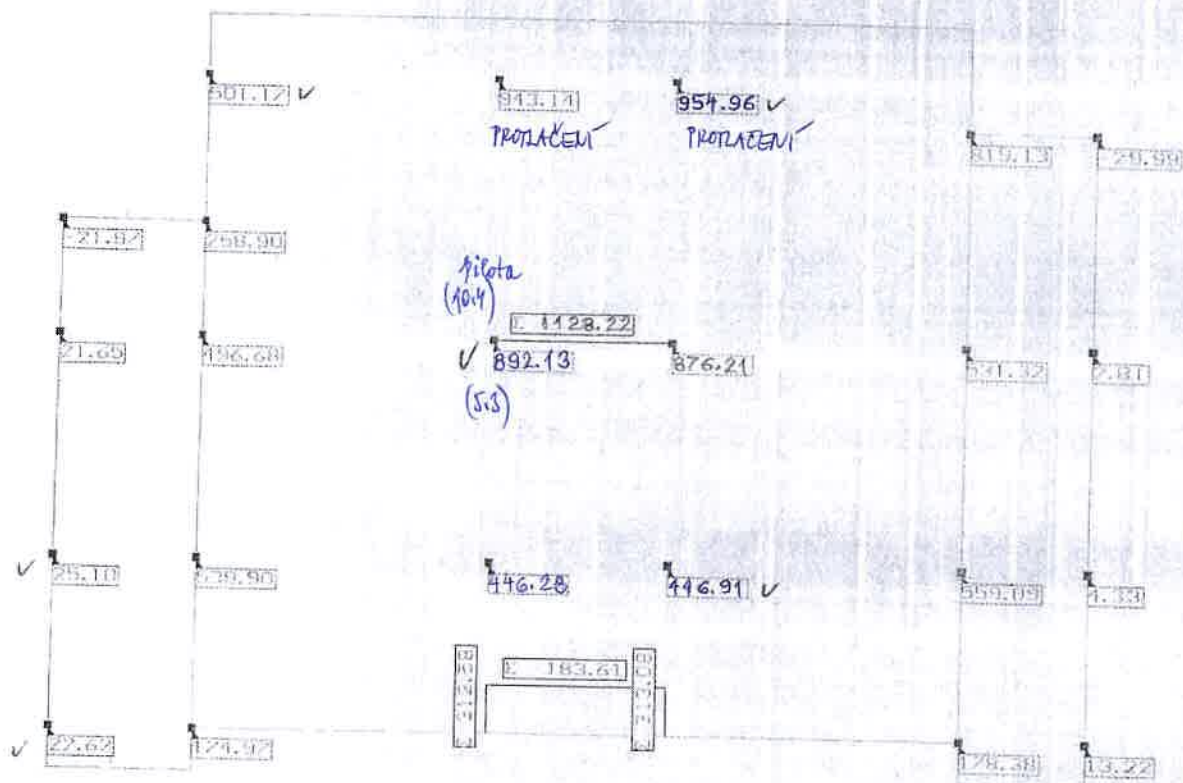 943.14
954.96 ✓
PROTLAČENÍ
PROTLAČENÍ
819.13
258.90
pilota
(10.4)
Σ 1128.22
21.65
496.68
✓ 892.13
876.21
531.32
2.81
(5.3)
✓ 25.10
446.28
446.91 ✓
559.09
4.33
Σ 183.61
✓ 27.67
174.97
178.38
13.22